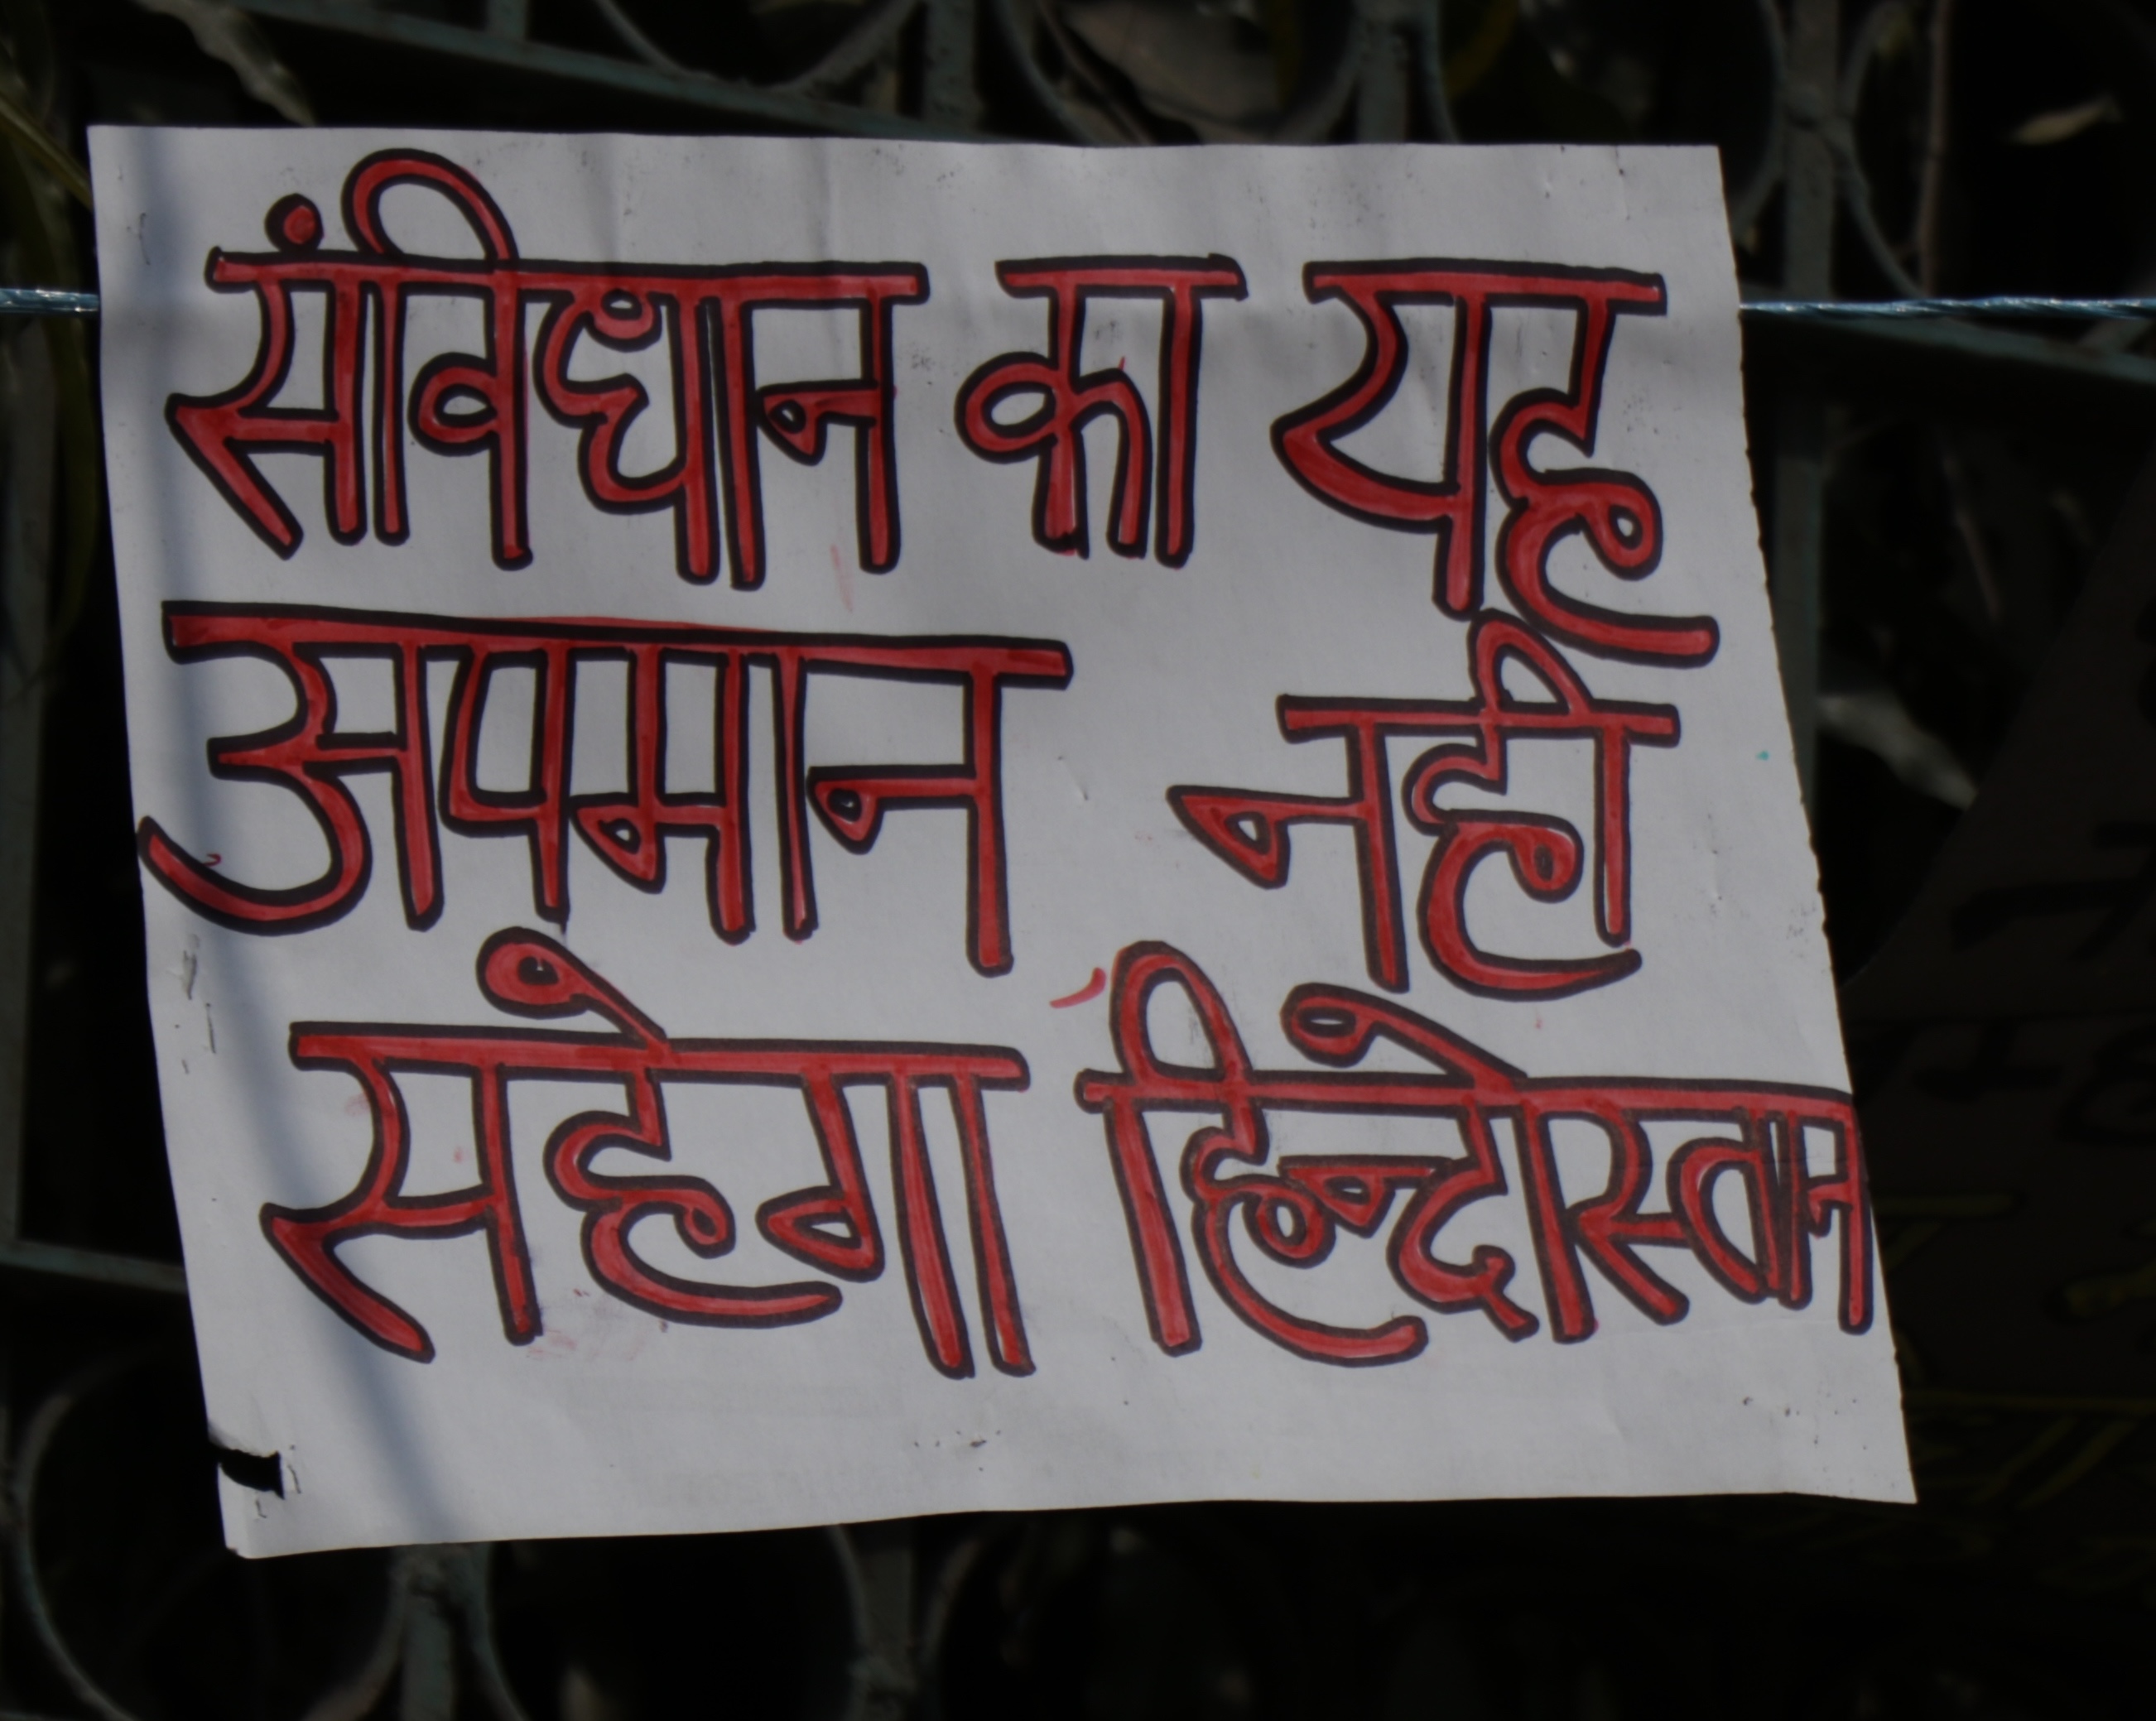 संविधान का यह
अपमान नही
सहेगा हिन्दोस्तान